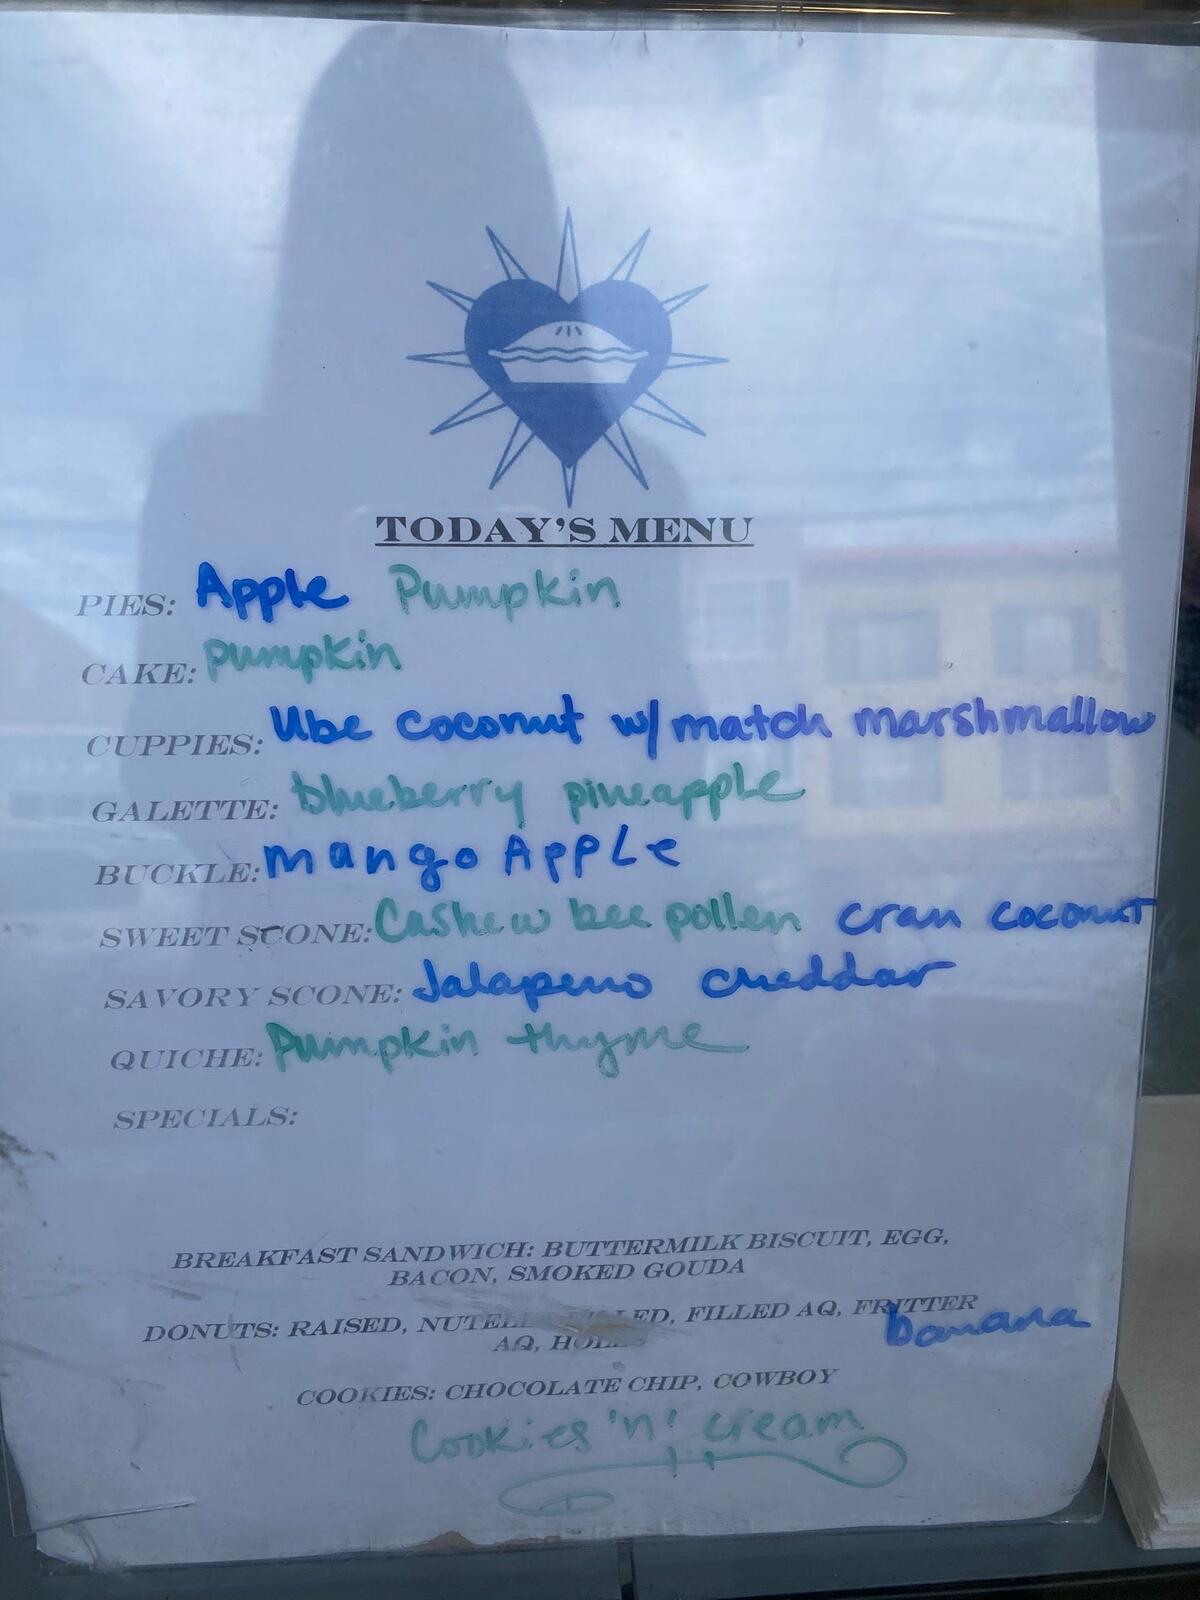 TODAY'S MENU
PIES: Apple Pumpkin
CAKE: pumpkin
CUPPIES: Ube coconut w/ match marshmallow
GALETTE: blueberry pineapple
BUCKLE: mango Apple
SWEET SCONE: Cashew bee pollen cran coconut
SAVORY SCONE: Jalapeno cheddar
QUICHE: Pumpkin thyme
SPECIALS:
BREAKFAST SANDWICH: BUTTERMILK BISCUIT, EGG,
BACON, SMOKED GOUDA
DONUTS: RAISED, FILLED AQ, FRITTER
AQ, banana
COOKIES: CHOCOLATE CHIP, COWBOY
Cookies 'n' cream